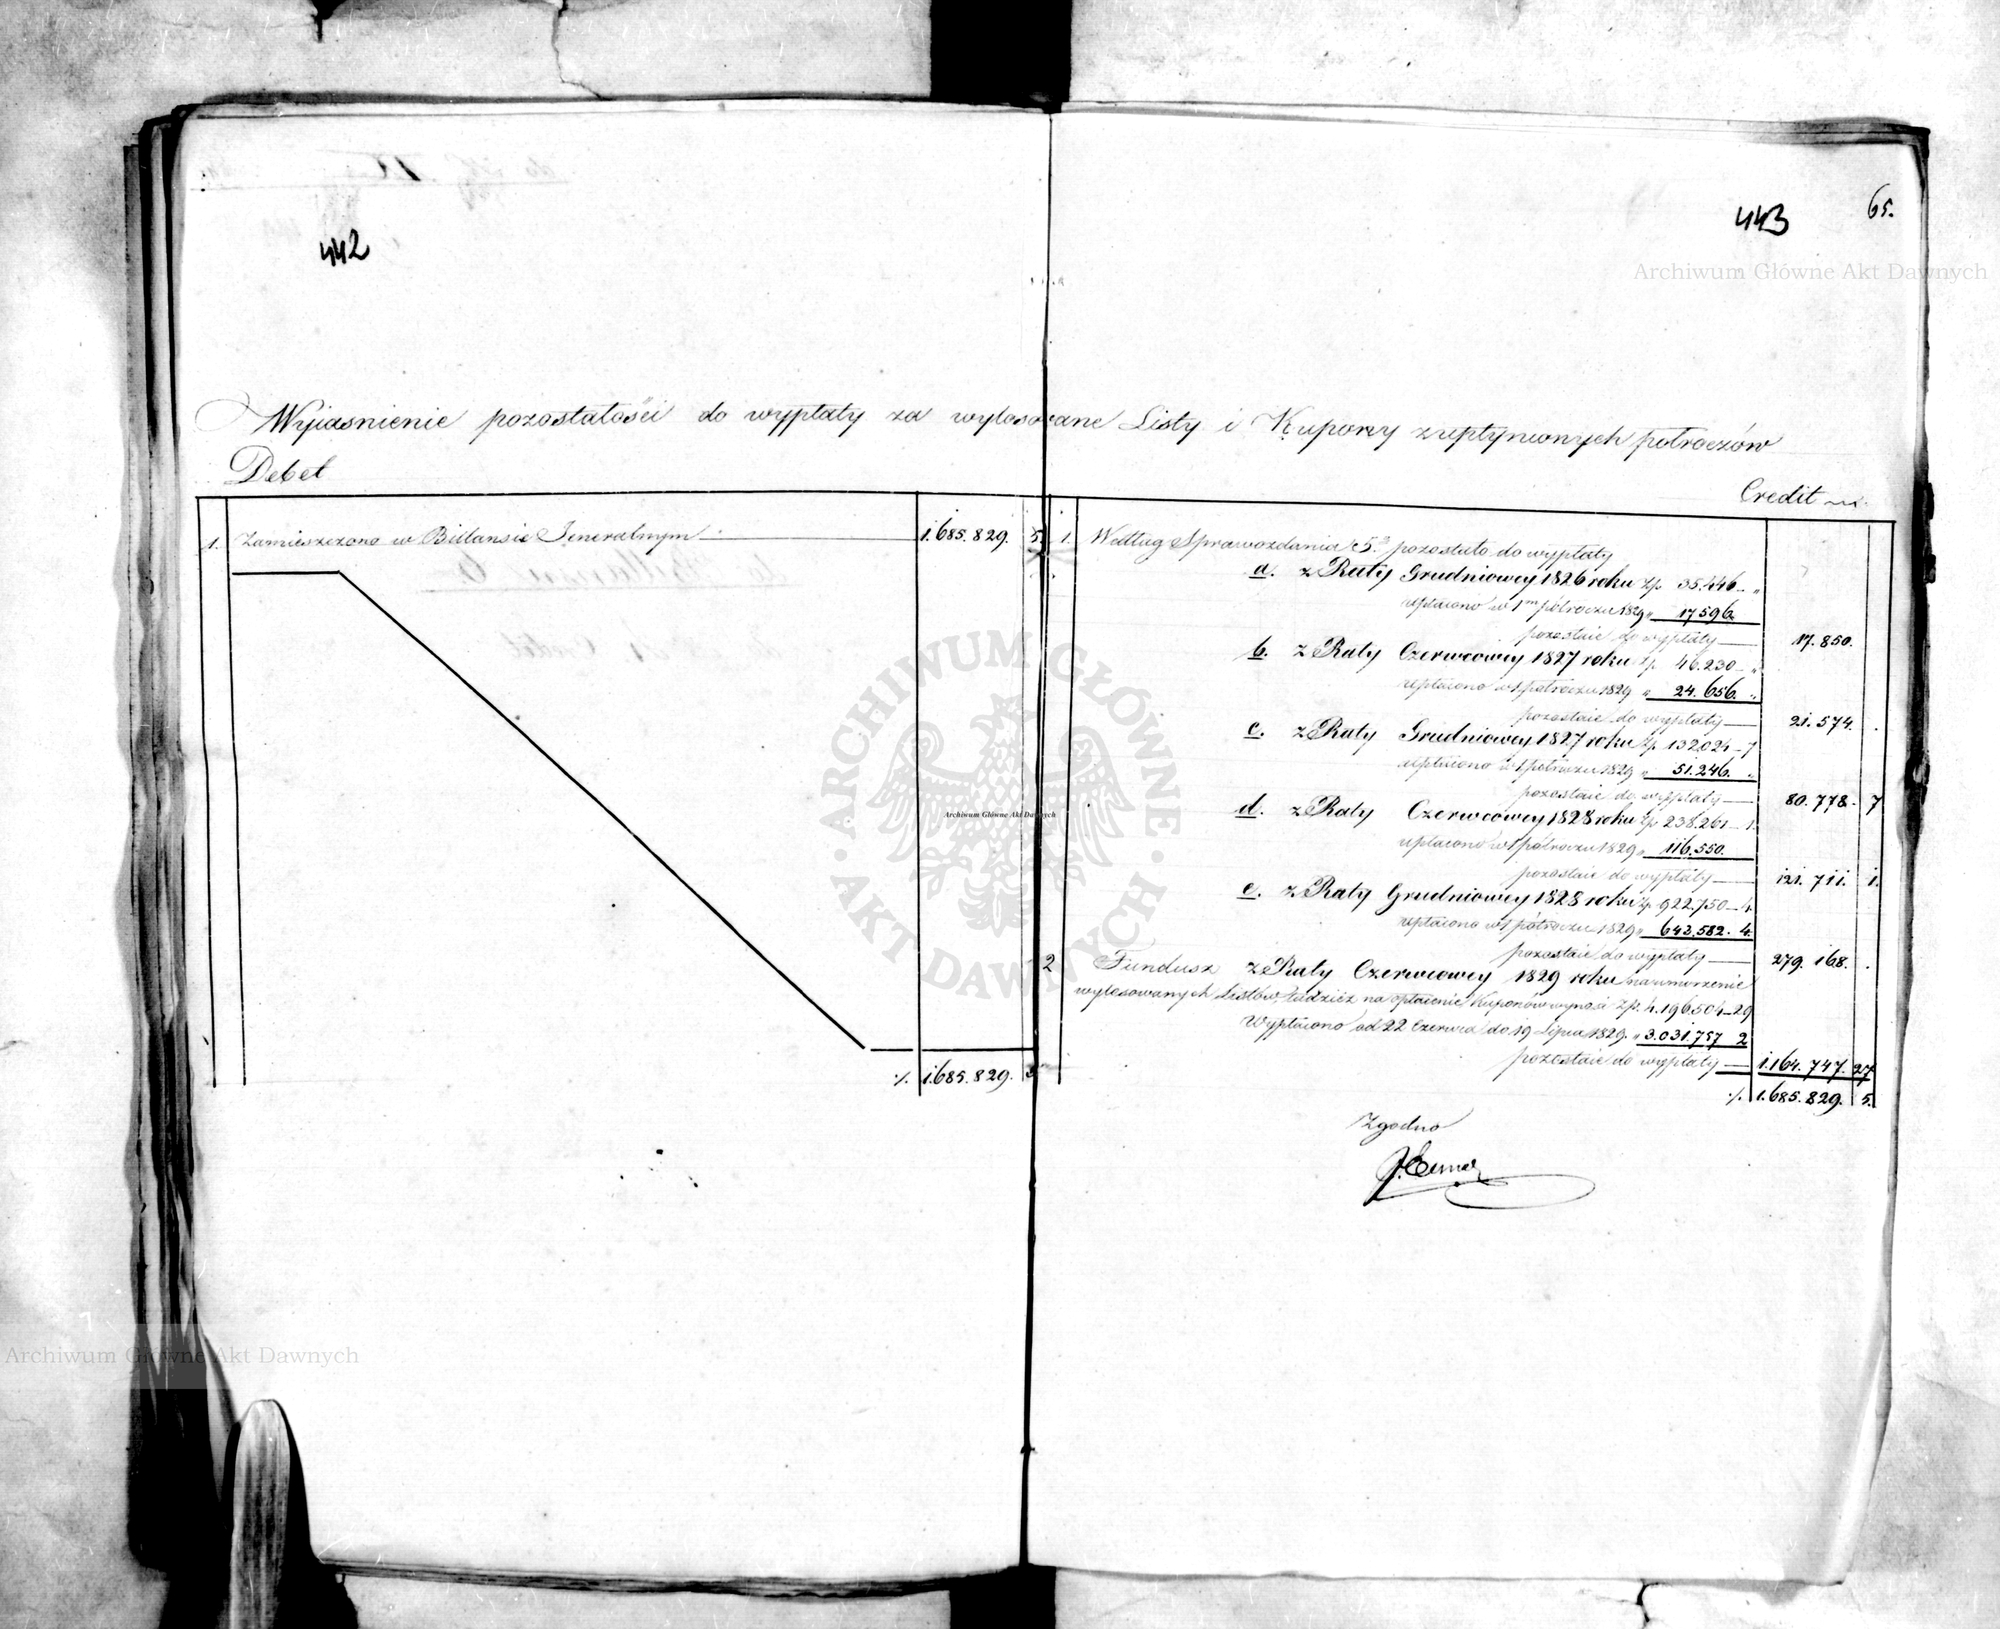 442
443
65.
Archiwum Główne Akt Dawnych
Wyiasnienie pozostałości do wypłaty za wylosowane Listy i Kupony z upłynionych półroczów
Debet
Credit
1. Zamieszczono w Billansie Jeneralnym 1.685.829. 5.
1. Według Sprawozdania 5.º pozostało do wypłaty
a. z Raty Grudniowey 1826 roku Zp. 35.446 — "
upłacono w 1m półroczu 1829 " 17596.
pozostaie do wypłaty — 17.850.
b. z Raty Czerwcowey 1827 roku Zp. 46.230 — "
upłacono w 1 półroczu 1829 " 24.656. "
pozostaie do wypłaty — 21.574. .
c. z Raty Grudniowey 1827 roku Zp. 132024 — 7
upłacono w 1 półroczu 1829 " 51.246. "
pozostaie do wypłaty — 80.778. 7
d. z Raty Czerwcowey 1828 roku Zp. 238.261 — 1.
upłacono w 1 półroczu 1829 " 116.550.
pozostaie do wypłaty — 121.711. 1.
e. z Raty Grudniowey 1828 roku Zp. 922.750 — 4.
upłacono w 1 półroczu 1829 " 643.582. 4.
pozostaie do wypłaty — 279.168. .
2 Fundusz z Raty Czerwcowey 1829 roku na umorzenie
wylosowanych Listów, tudzież na opłacenie Kuponów wynosi Zp. 4.196.504 — 29
Wypłacono od 22 Czerwca do 19 Lipca 1829. " 3.031.757 2
pozostaie do wypłaty — 1.164.747. 27
./. 1.685.829. 5
./. 1.685.829. 5.
Zgodno
ARCHIWUM GŁÓWNE
AKT DAWNYCH
Archiwum Główne Akt Dawnych
Archiwum Główne Akt Dawnych